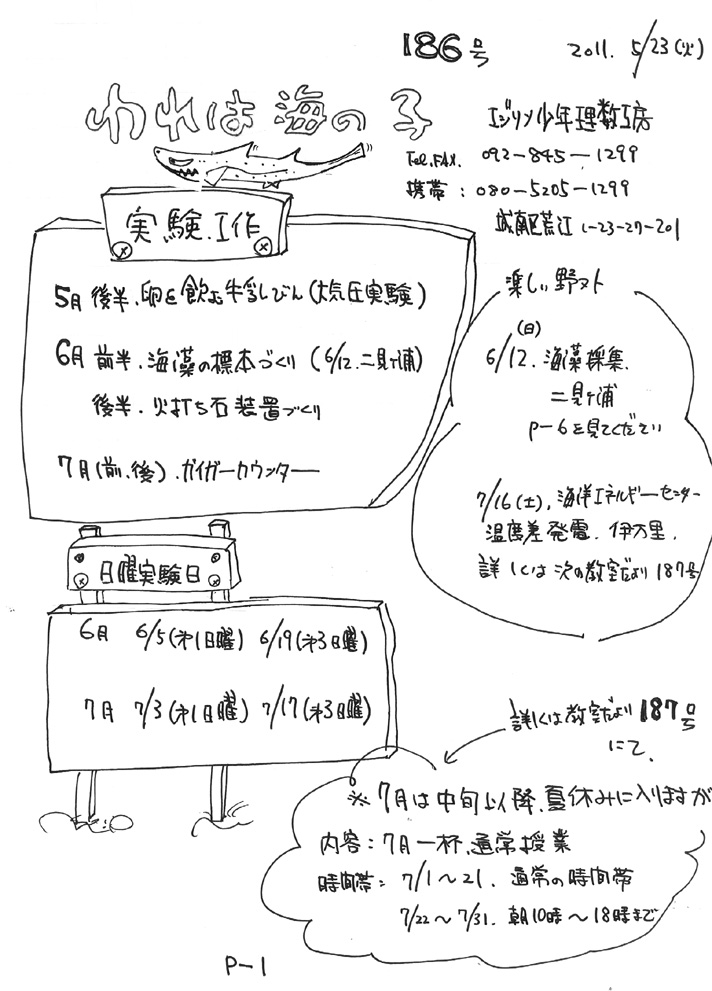 186号
2011. 5/23(火)
われは海の子
エジソン少年理数工房
Tel.FAX. 092-845-1299
携帯：080-5205-1299
城南区荒江 1-23-27-201
実験.工作
5月 後半.卵を飲む牛乳びん(大気圧実験)
6月 前半.海藻の標本づくり (6/12.二見ヶ浦)
後半.火打ち石装置づくり
7月(前.後).ガイガーカウンター
楽しい野外
(日)
6/12.海藻採集.
二見ヶ浦
P-6を見てください
7/16(土),海洋エネルギーセンター
温度差発電.伊万里.
詳しくは次の教室だより187号
日曜実験日
6月 6/5(第1日曜) 6/19(第3日曜)
7月 7/3(第1日曜) 7/17(第3日曜)
詳しくは教室だより187号
にて.
※7月は中旬以降.夏休みに入りますが
内容：7月一杯.通常授業
時間帯：7/1～21.通常の時間帯
7/22～7/31.朝10時～18時まで
P-1